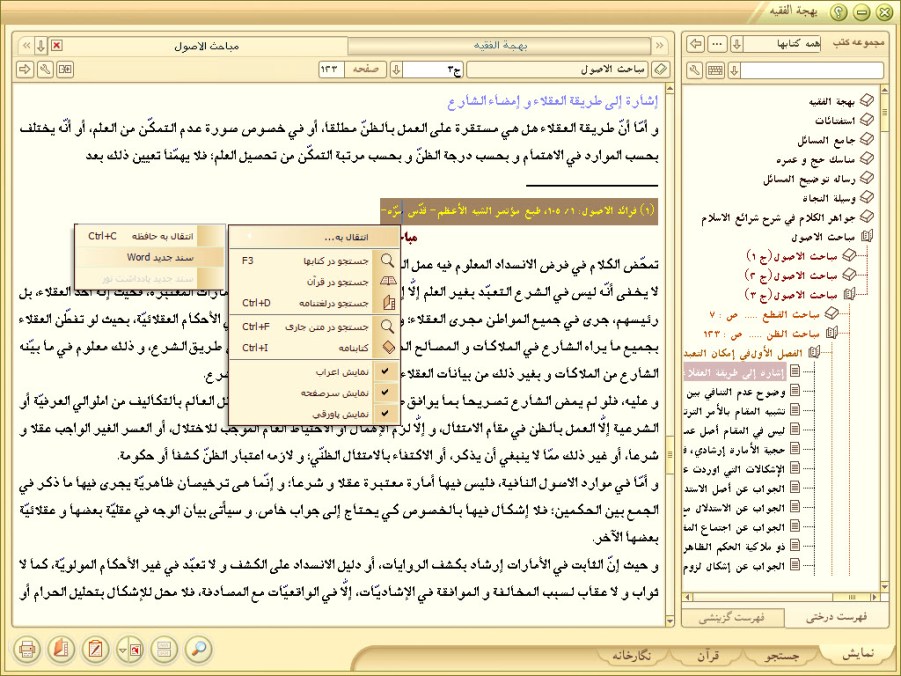 بهجة الفقيه
مجموعه کتب
همه کتابها
بهجة الفقيه
استفتائات
جامع المسائل
مناسک حج و عمره
رساله توضيح المسائل
وسيلة النجاة
جواهر الکلام في شرح شرائع الاسلام
مباحث الاصول
مباحث الاصول(ج ١)
مباحث الاصول(ج ٢)
مباحث الاصول(ج ٣)
مباحث القطع ..... ص : ٧
مباحث الظن ..... ص : ١٢٣
الفصل الأول‌في إمکان التعبد
إشارة إلى طريقة العقلا
وضوح عدم التنافي بين
تشبيه المقام بالأمر الترت
ليس في المقام أصل عم
حجية الأمارة إرشادي، ق
الإشکالات التي اوردت ع
الجواب عن أصل الاستد
الجواب عن الاستدلال مع
الجواب عن اجتماع المف
ذو ملاکية الحکم الظاهر
الجواب عن إشکال لزوم
فهرست درختی
فهرست گزینشی
بهجة الفقيه
مباحث الاصول
مباحث الاصول
ج٣
صفحه
١٢٣
إشارة إلى طريقة العقلاء و إمضاء الشارع
و أمّا أنّ طريقة العقلاء هل هي مستقرة على العمل بالظنّ مطلقاً، أو في خصوص صورة عدم التمکّن من العلم، أو أنّه يختلف
بحسب الموارد في الاهتمام و بحسب درجة الظنّ و بحسب مرتبة التمکّن من تحصيل العلم؛ فلا يهمّنا تعيين ذلك بعد
(١) فرائد الاصول: ١/ ١٠٥، طبع مؤتمر الشيه الأعظم- قدّس سرّه-
انتقال به...
جستجو در کتابها
F3
جستجو در قرآن
جستجو درلغتنامه
Ctrl+D
جستجو در متن جاری
Ctrl+F
کتابنامه
Ctrl+I
نمایش اعراب
نمایش سرصفحه
نمایش پاورقی
انتقال به حافظه
Ctrl+C
سند جدید Word
سند جدید یادداشت نور
تمحّض الکلام في فرض الانسداد المعلوم فيه عمل ال
لا يخفى أنّه ليس في الشرع التعبّد بغير العلم إلّا إ
مارات المعتبرة، فحيث إنّه أحد العقلاء، بل
رئيسهم، جرى في جميع المواطن مجرى العقلاء؛ و
ي الأحکام العقلائيّة، بحيث لو تفطّن العقلاء
بجميع ما يراه الشارع في الملاکات و المصالح الم
طريق الشرع، و ذلك معلوم في ما بيّنه
الشارع من الملاکات و بغير ذلك من بيانات العقلاء
رع.
و عليه، فلو لم يمض الشارع تصريحاً بما يوافق ط
ل العالم بالتکاليف من اموالي العرفيّة أو
الشرعية إلّا العمل بالظن في مقام الامتثال، و إلّا لزم الإهمال أو الاحتياط العام الموجب للاختلال، أو العسر الغير الواجب عقلا و
شرعاً، أو غير ذلك ممّا لا ينبغي أن يذکر، أو الاکتفاء بالامتثال الظنّي؛ و لازمه اعتبار الظنّ کشفا أو حکومة.
و أمّا في موارد الاصول النافية، فليس فيها أمارة معتبرة عقلا و شرعاً؛ و إنّما هى ترخيصان ظاهريّة يجرى فيها ما ذکر في
الجمع بين الحکمين؛ فلا إشکال فيها بالخصوص کي يحتاج إلى جواب خاص. و سيأتى بيان الوجه في عقليّة بعضها و عقلائية
بعضها الآخر.
و حيث إنّ الثابت في الأمارات إرشاد بکشف الروايات، أو دليل الانسداد على الکشف و لا تعبّد في غير الأحکام المولويّة، کما لا
ثواب و لا عقاب لسبب المخالفة و الموافقة في الإرشاديّات، إلّا في الواقعيّات مع المصادفة، فلا محل للإشکال بتحليل الحرام أو
نمایش
جستجو
قرآن
نگارخانه